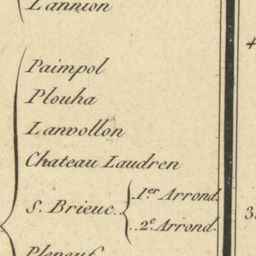 Lannion
Paimpol
Plouha
Lanvollon
Chateau Laudren
S. Brieuc. 1.er Arrond.
2.e Arrond.
Pleneuf
4
3